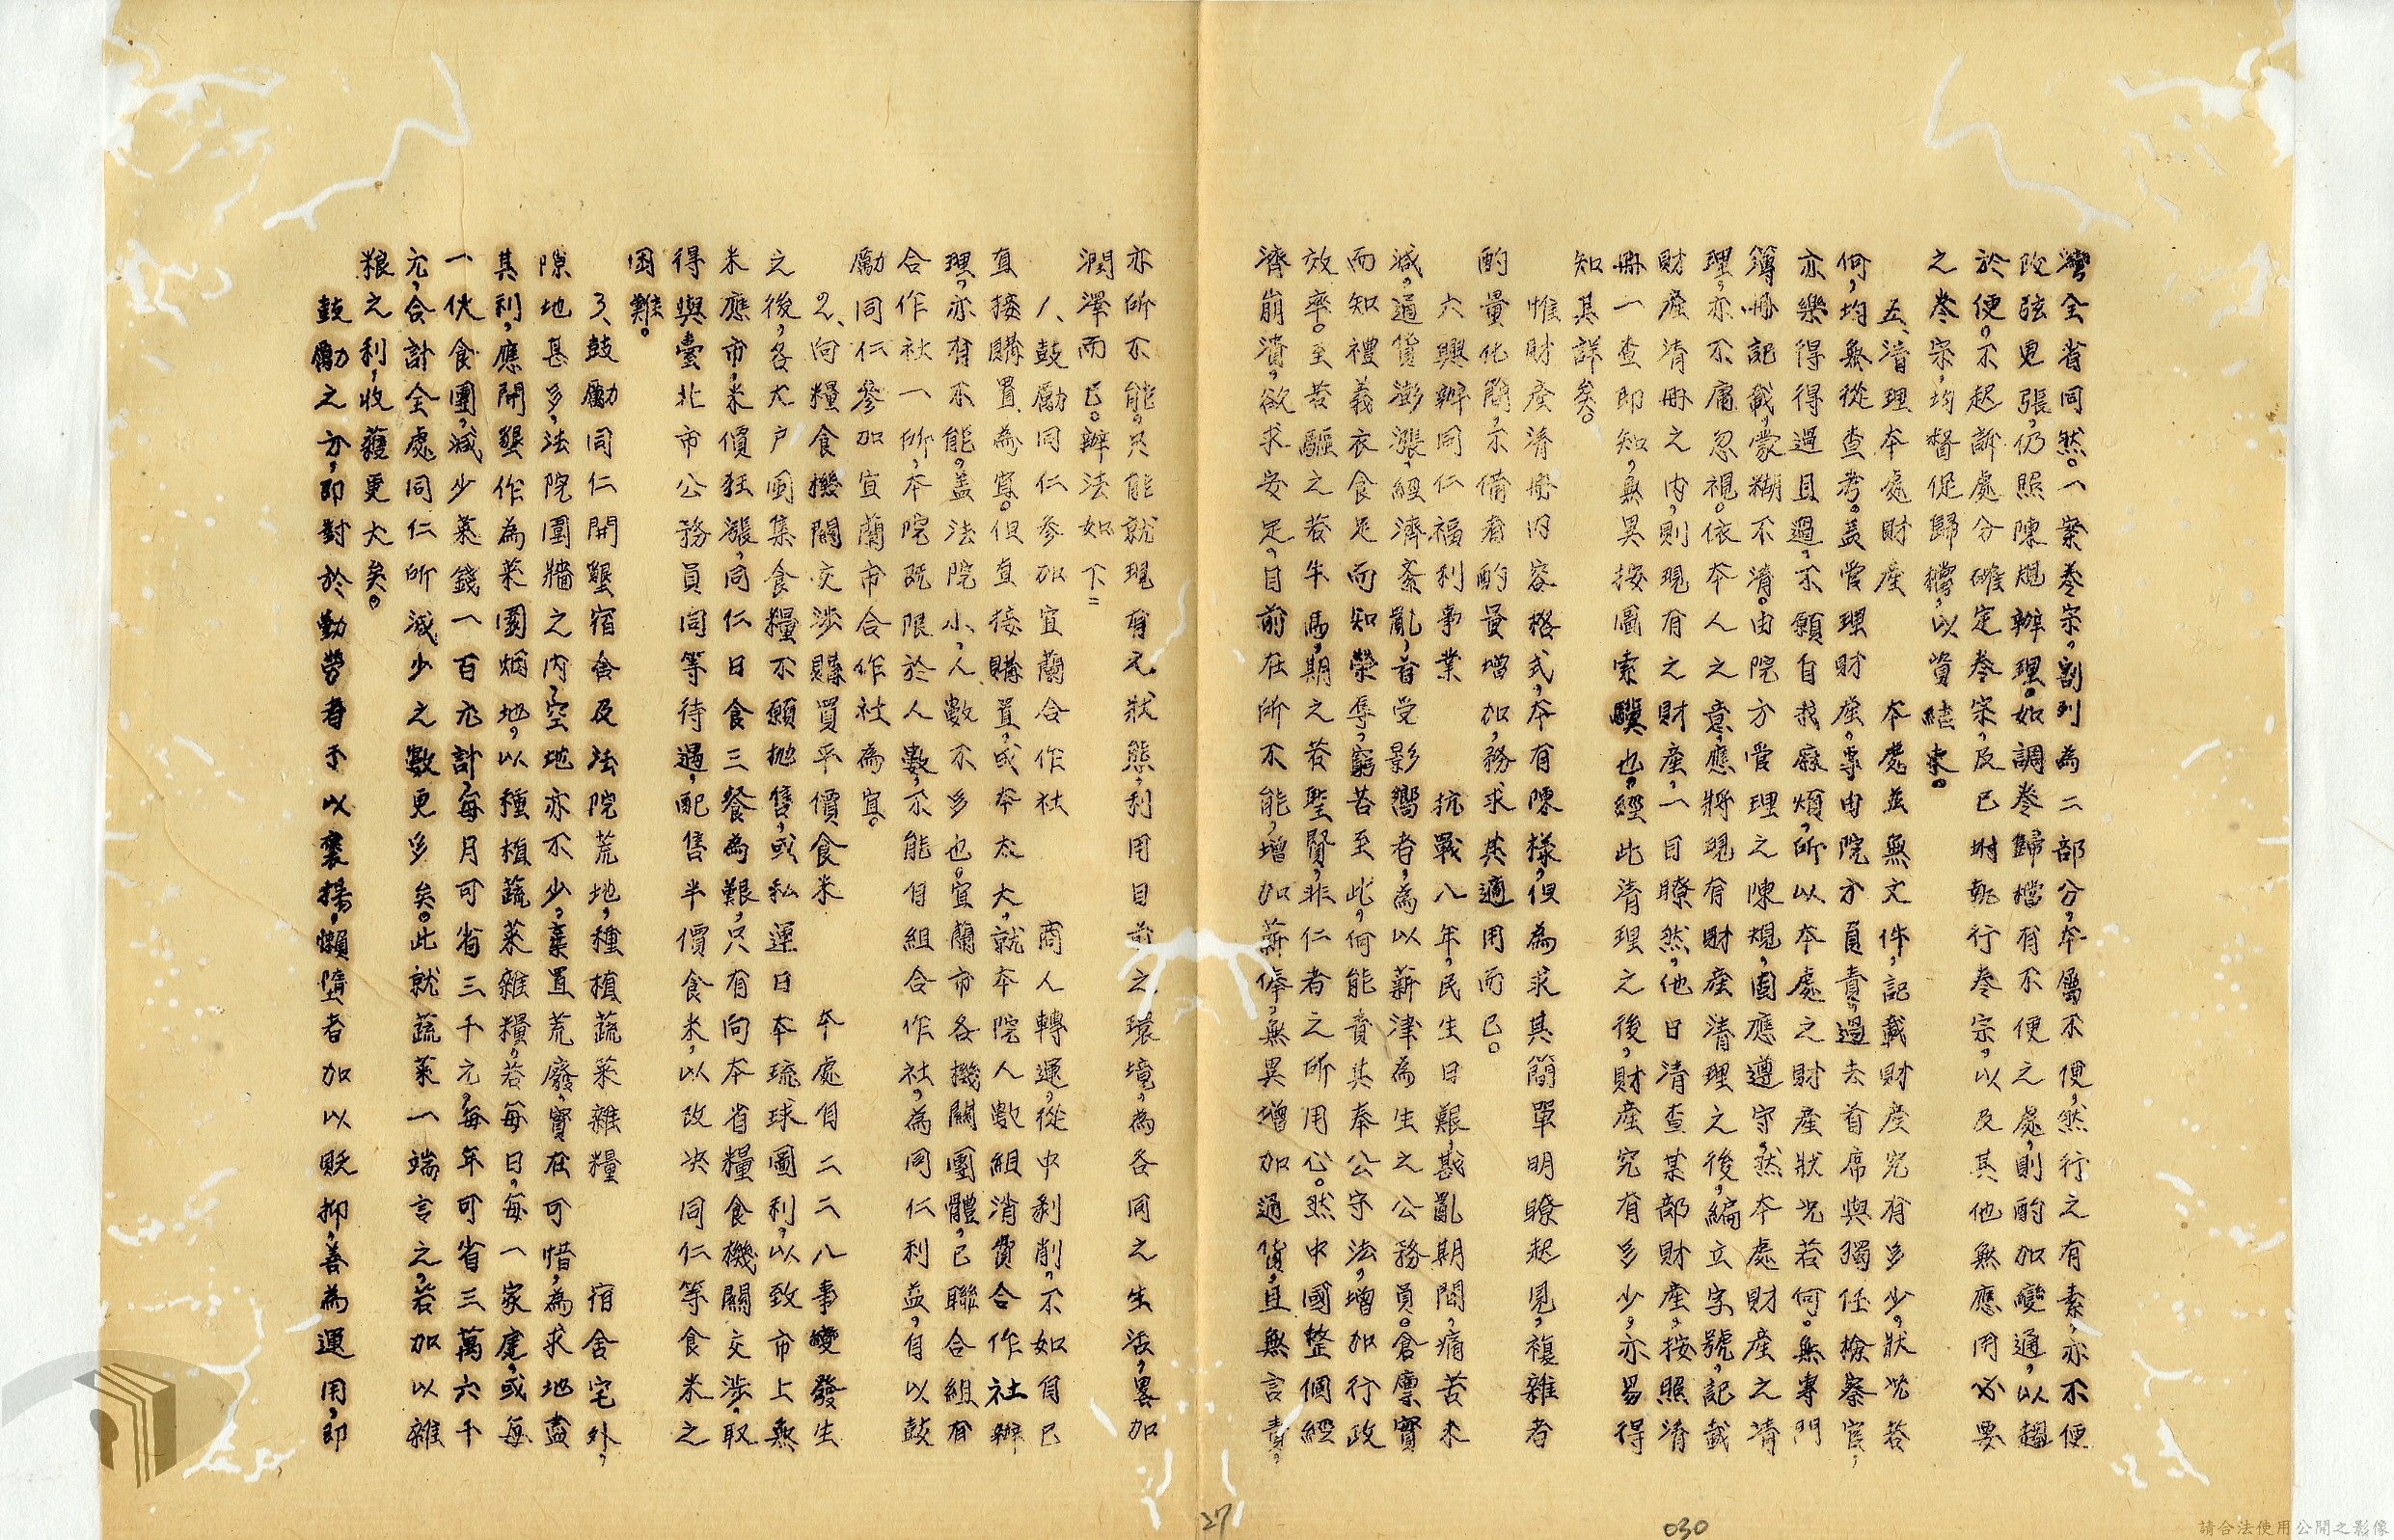 灣全省同然。一案卷宗，割列為二部分，本屬不便，然行之有素，亦不便
改弦更張，仍照陳規辦理。如調卷歸檔有不便之處，則酌加變通，以趨
於便。不起訴處分確定卷宗，及已附執行卷宗，以及其他無應用必要
之卷宗，均督促歸檔，以資結束。
五、清理本處財產　本處並無文件，記載財產究有多少，狀況若
何，均無從查考。蓋管理財產，專由院方負責，過去首席與獨任檢察官，
亦樂得得過且過，不願自找麻煩，所以本處之財產狀況若何。無專門
簿冊記載，蒙糊不清。由院方管理之陳規，固應遵守，然本處財產之清
理，亦不庸忽視。依本人之意，應將現有財產清理之後，編立字號，記載
財產清冊之內，則現有之財產，一目瞭然，他日清查某部財產，按照清
冊一查即知，無異按圖索驥也。經此清理之後，財產究有多少，亦易得
知其詳矣。
惟財產清冊內容格式，本有陳樣，但為求其簡單明瞭起見，複雜者
酌量化簡，不備者酌量增加，務求其適用而已。
六興辦同仁福利事業　抗戰八年，民生日艱，戡亂期間，痛苦未
減，通貨澎漲，經濟紊亂，首受影嚮者，為以薪津為生之公務員。倉廩實
而知禮義衣食足而知榮辱，窮苦至此，何能責其奉公守法，增加行政
效率。至若驅之若牛馬，期之若聖賢，非仁者之所用心。然中國整個經
濟崩潰，欲求安足，目前在所不能，增加薪俸，無異增加通貨，且無言責，
亦所不能，只能就現有之狀態，利用目前之環境，為各同之生活，畧加
潤澤而已。辦法如下=
1、鼓勵同仁參加宜蘭合作社　商人轉運，從中剥削，不如自己
直接購置為宜。但直接購置，或本太大，就本院人數組消費合作社辦
理，亦有不能。蓋法院小，人數不多也。宜蘭市各機關團體，已聯合組有
合作社一所，本院既限於人數，不能自組合作社，為同仁利益，自以鼓
勵同仁參加宜蘭市合作社為宜。
2、向糧食機關交涉購買平價食米　本處自二二八事變發生
之後，各大戶囤集食糧不願拋售，或私運日本琉球圖利，以致市上無
米應市，米價狂漲，同仁日食三餐為艱，只有向本省糧食機關交涉，取
得與臺北市公務員同等待遇，配售半價食米，以改決同仁等食米之
困難。
3、鼓勵同仁開墾宿舍及法院荒地，種植蔬菜雜糧　宿舍宅外，
隙地甚多，法院圍牆之內，空地亦不少，棄置荒廢，實在可惜，為求地盡
其利，應開墾作為菜園烟地，以種植蔬菜雜糧。若每日，每一家庭，或每
一伙食團，減少菜錢一百元計，每月可省三千元，每年可省三萬六千
元，合計全處同仁所減少之數更多矣。此就蔬菜一端言之，若加以雜
粮之利，收穫更大矣。
鼓勵之方，即對於勤勞者予以褒揚，懶墮者加以貶抑，善為運用，即
27
030
請合法使用公開之影像